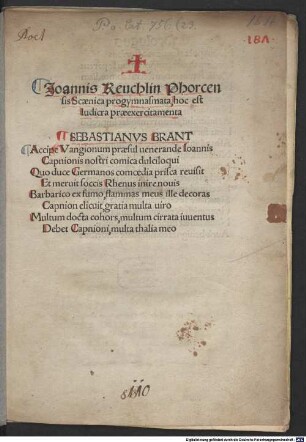 Ioannis Reuchlin Phorcen
sis Scænica progymnasmata, hoc est
ludicra præexercitamenta
SEBASTIANVS BRANT
Accipe Vangionum præsul uenerande Ioannis
Capnionis nostri comica dulciloqui
Quo duce Germanos comœdia prisca reuisit
Et meruit soccis Rhenus inire nouis
Barbarico ex fumo, flammas meus ille decoras
Capnion elicuit, gratia multa uiro
Multum docta cohors, multum cirrata iuuentus
Debet Capnioni, multa thalia meo